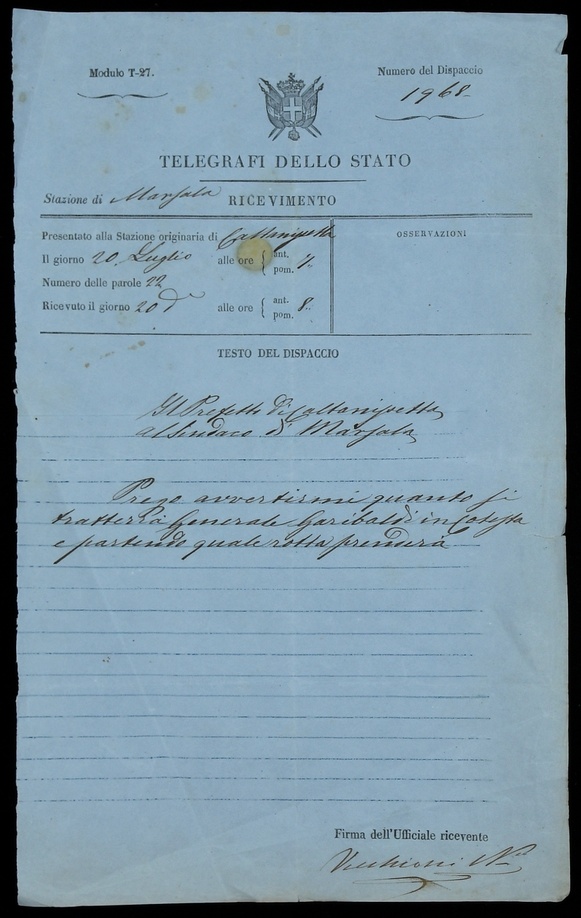 Modulo T-27.
Numero del Dispaccio
1968
TELEGRAFI DELLO STATO
Stazione di Marsala RICEVIMENTO
Presentato alla Stazione originaria di Caltanissetta
OSSERVAZIONI
Il giorno 20 Luglio alle ore { ant. pom.
Numero delle parole 22
Ricevuto il giorno 20 d alle ore { ant. pom. 8
TESTO DEL DISPACCIO
Il Prefetto di Caltanissetta
al Sindaco di Marsala
Prego avvertirmi quanto si
tratterrà Generale Garibaldi in Cotesta
e partendo quale rotta prenderà
Firma dell'Ufficiale ricevente